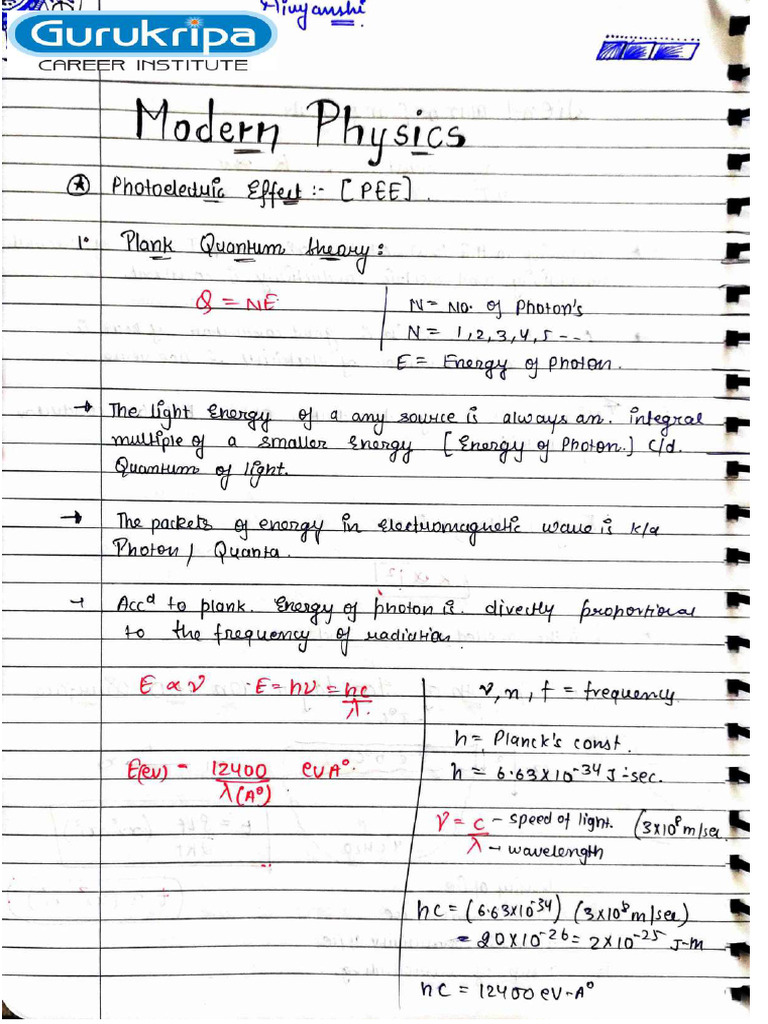 Divyanshi
Gurukripa
CAREER INSTITUTE
Modern Physics
Photoelectric Effect :- [PEE].
1° Plank Quantum theory:
Q = NE
N = No. of Photon's
N = 1,2,3,4,5 - - -
E = Energy of Photon.
→ The light Energy of a any source is always an. integral
multiple of a smaller energy [Energy of Photon.] c/d.
Quantum of light.
→ The packets of energy in electromagnetic wave is k/a
Photon / Quanta.
→ Accᵈ to plank. Energy of photon is. directly proportional
to the frequency of radiation.
E ∝ ν E = hν = hc/λ.
ν, n, f = frequency
h = Planck's const.
h = 6.63×10⁻³⁴ J-sec.
E(ev) = 12400/λ(A°) eVA°.
ν = c/λ
- speed of light. (3×10⁸ m/sec
- wavelength
hc = (6.63×10⁻³⁴) (3×10⁸ m/sec)
= 20×10⁻²⁶ = 2×10⁻²⁵ J-m
hc = 12400 eV-A°